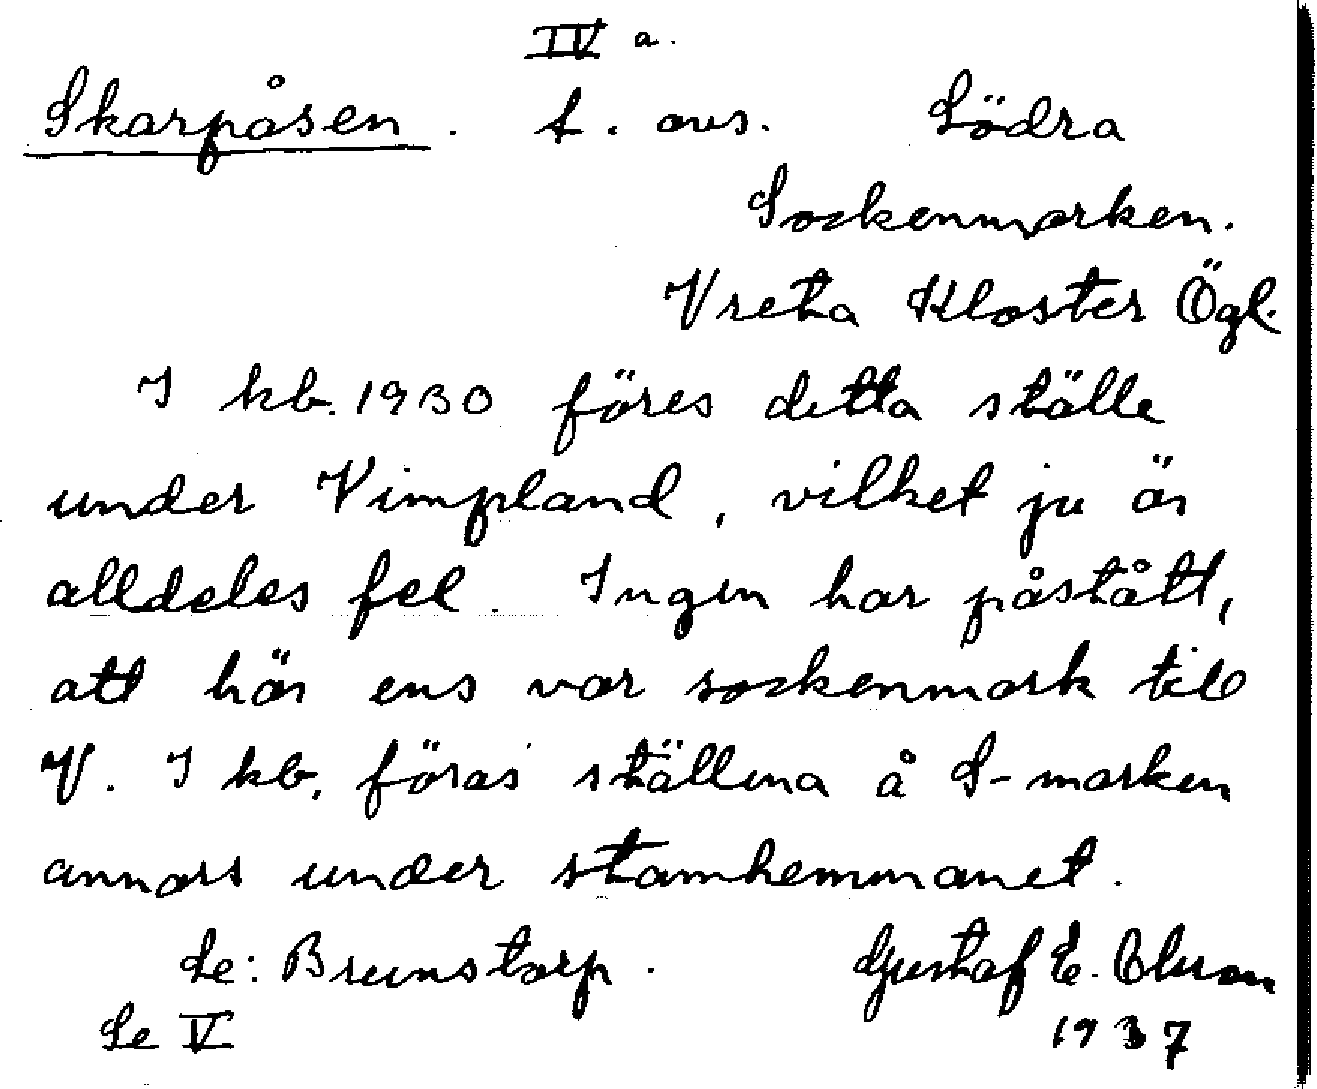 IV a.
Skarpåsen. f. avs. Södra
Sockenmarken.
Vreta Kloster Ögl.
I kb. 1930 föres detta ställe
under Vimpland, vilket ju är
alldeles fel. Ingen har påstått,
att här ens var sockenmark till
V. I kb, föras ställena å S-marken
annars under stamhemmanet.
Se: Brunstorp. Gustaf E.
Se V 1937